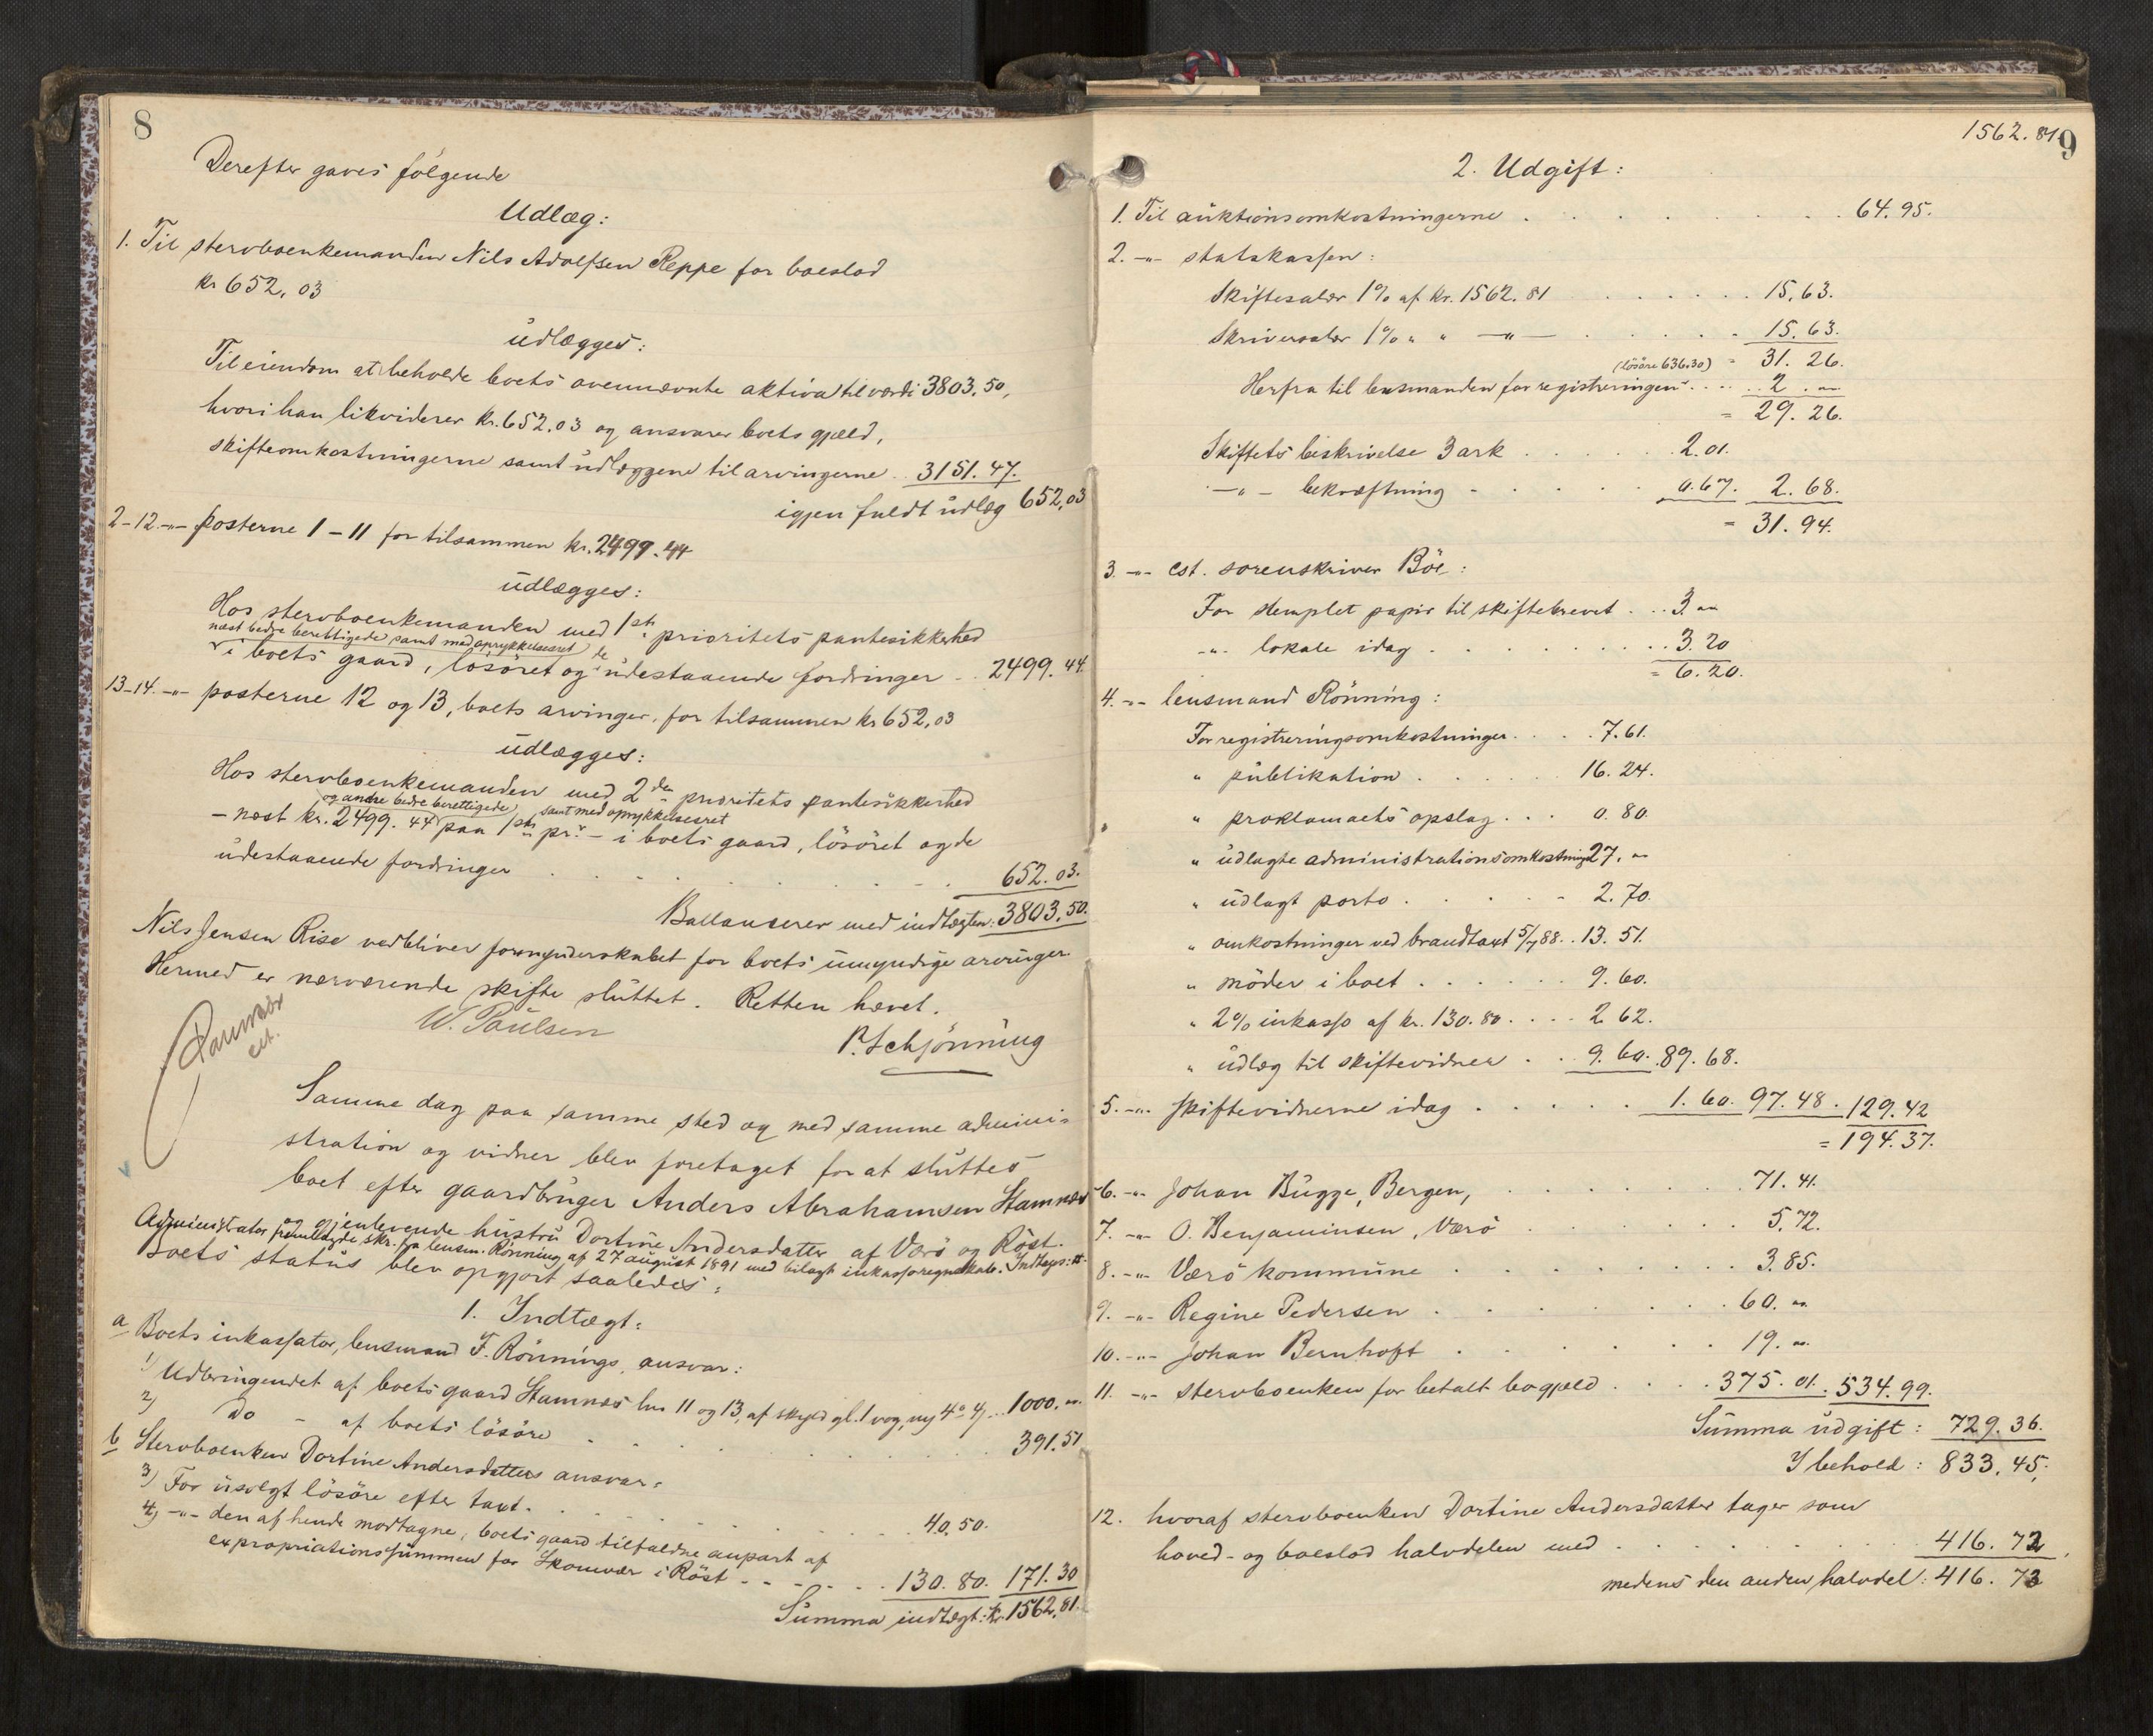 8
Derefter gaves følgende
Udlæg:
1. Til stervboenkemanden Nils Adolfsen Reppe for boeslod
kr 652,03
udlægges:
Til eiendom at beholde boets ovennævnte aktiva til værdi 3803,50,
hvori han likviderer kr. 652,03 og ansvarer boets gjæld,
skifteomkostningerne samt udlæggene til arvingerne .. 3151.47.
igjen fuldt udlæg 652,03
2-12. -"- posterne 1-11 for tilsammen kr. 2499.44
udlægges:
Hos stervboenkemanden med 1ste prioritets pantesikkerhed
næst bedre berettigede samt med oprykkelsesret
i boets gaard, løsøret og de udestaaende fordringer .. 2499.44.
13-14. -"- posterne 12 og 13, boets arvinger, for tilsammen kr 652,03
udlægges:
Hos stervboenkemanden med 2den prioritets pantesikkerhed
og andre bedre berettigede samt med oprykkelsesret
- næst kr. 2499.44 paa 1ste pr. - i boets gaard, løsøret og de
udestaaende fordringer . . . . . 652.03.
Ballancerer med indtægten: 3803.50.
Nils Jensen Rise vedbliver formynderskabet for boets umyndige arvinger.
Hermed er nærværende skifte sluttet. Retten hævet.
W. Paulsen
P. Schjønning
cst.
Samme dag paa samme sted og med samme admini-
stration og vidner blev foretaget for at sluttes
boet efter gaardbruger Anders Abrahamsen Stamnæs
og gjenlevende hustru Dortine Andersdatter af Værø og Røst.
Administrator fremlagde skr. fra lensm. Rønning af 27 august 1891 med bilagt inkassoregnskab. Indtages: #.
Boets status blev opgjort saaledes:
1. Indtægt:
a Boets inkassator, lensmand F. Rønnings, ansvar:
1) Udbringendet af boets gaard Stamnæs lnr 11 og 13, af skyld gl. 1 vog, ny 4 .. 1000. "
2) Do - af boets løsøre . . . . . 391.51
b Stervboenken Dortine Andersdatters ansvar:
3) For usolgt løsøre efter taxt. . . . . . 40.50.
4) -"- den af hende modtagne, boets gaard tilfaldne anpart af
expropriationssummen for Skomvær i Røst - - - . . . 130.80. 171.30
Summa indtægt: kr. 1562,81.
1562.81
9
2. Udgift:
1. Til auktionsomkostningerne . . . . . 64.95.
2. -"- statskassen:
Skiftesalær 1% af kr. 1562.81 . . . . . 15,63.
Skriversalær 1% " " -"- . . . . . 15.63.
(løsøre 636.30) = 31.26.
Herfra til lensmanden for registreringen . . . 2. "
= 29.26.
Skiftets beskrivelse 3 ark . . . . . 2.01.
-"- bekræftning - . . . . 0.67. 2.68.
= 31.94.
3. -"- cst. sorenskriver Böe:
For stemplet papir til skiftebrevet . . . 3. "
-"- lokale idag . . . . . 3.20
= 6.20.
4. -"- lensmand Rønning:
For registreringsomkostninger . . . . 7.61.
" publikation . . . . . 16.24.
" proklamaets opslag . . . 0.80.
" udlagte administrationsomkostninger 27. "
" udlagt porto . . . . . 2.70.
" omkostninger ved brandtaxt 5/7 88 . . 13.51.
" møder i boet . . . . . 9.60.
" 2% inkasso af kr. 130.80 . . . . 2.62.
" udlæg til skiftevidner . . . 9.60. 89.68.
5. -"- skiftevidnerne idag . . . . . 1.60. 97.48. 129.42
= 194.37.
6. -"- Johan Bügge, Bergen, . . . . . 71.41.
7. -"- O. Benjaminsen, Værø . . . . . 5.72.
8. -"- Værø kommune . . . . . 3.85.
9. -"- Regine Pedersen . . . . . 60. "
10. -"- Johan Bernhoft . . . . . 19. "
11. -"- stervboenken for betalt bogjæld . . . . 375.01. 534.99.
Summa udgift: 729.36.
I behold: 833.45;
12. hvoraf stervboenken Dortine Andersdatter tager som
hoved- og boeslod halvdelen med . . . . . 416.72,
medens den anden halvdel: 416.73